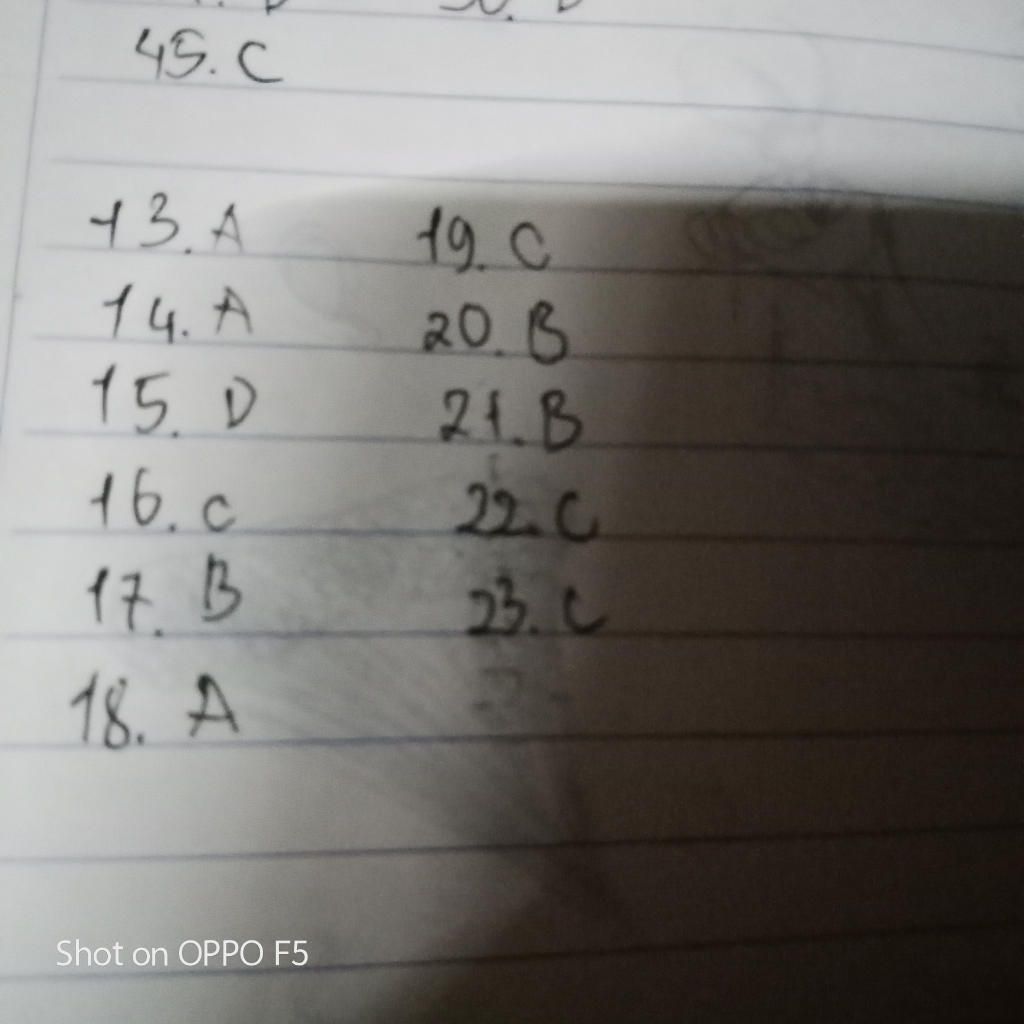 45. C
13. A 19. C
14. A 20. B
15. D 21. B
16. C 22. C
17. B 23. C
18. A
Shot on OPPO F5